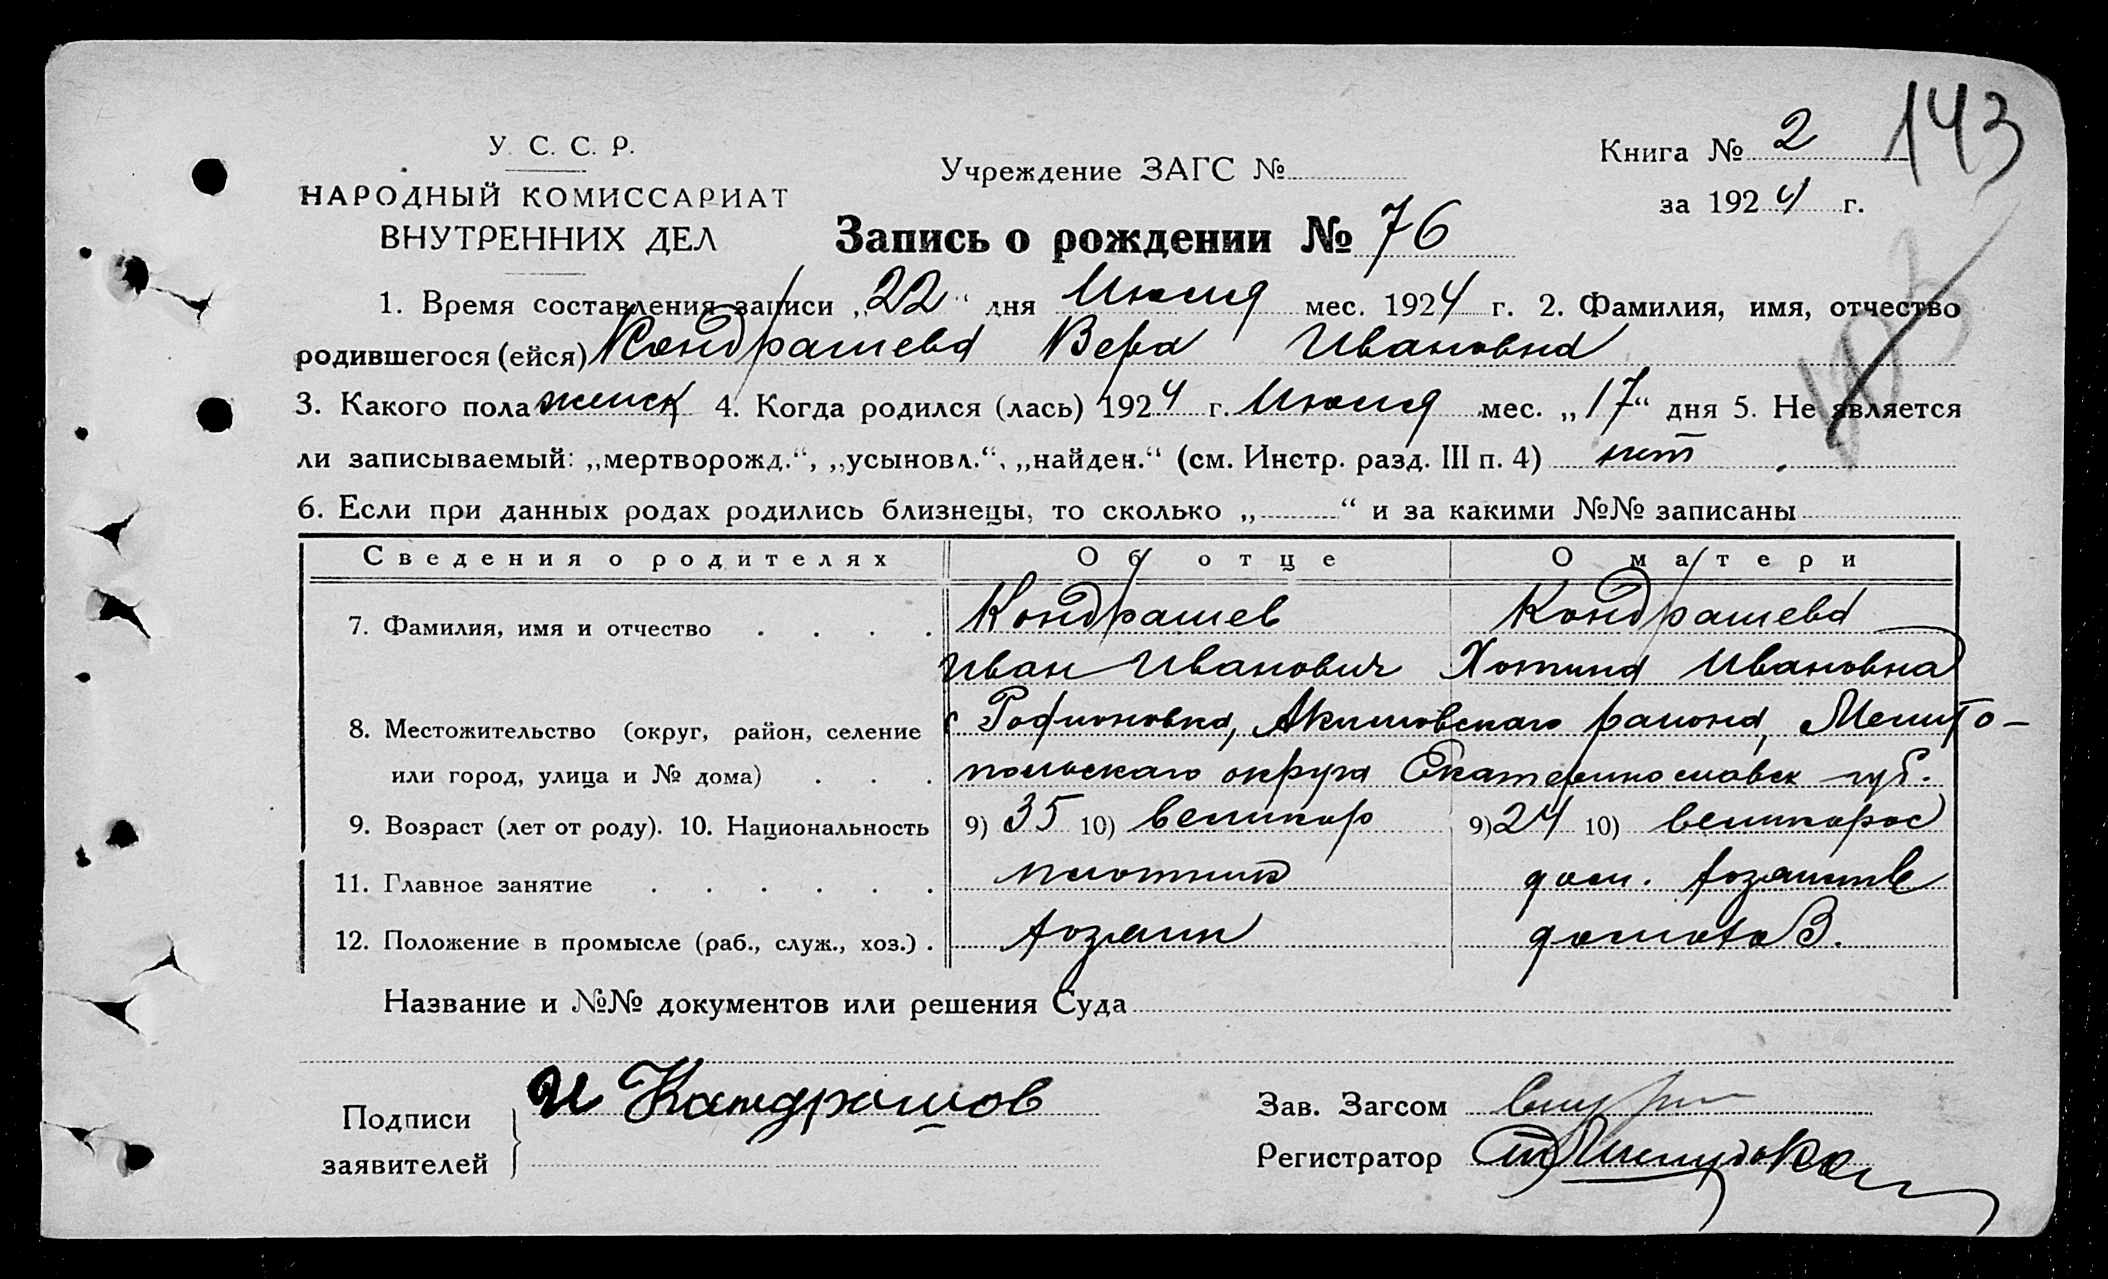 143
У. С. С. Р.
НАРОДНЫЙ КОМИССАРИАТ
ВНУТРЕННИХ ДЕЛ
Учреждение ЗАГС №
Книга № 2
за 1924 г.
Запись о рождении № 76
1. Время составления записи „22“ дня Июля мес. 1924 г. 2. Фамилия, имя, отчество
родившегося (ейся) Кондрашева Вера Ивановна
3. Какого пола женск 4. Когда родился (лась) 1924 г. Июля мес. „17“ дня 5. Не является
ли записываемый: „мертворожд.“, „усыновл.“, „найден.“ (см. Инстр. разд. III п. 4) нет
6. Если при данных родах родились близнецы, то сколько „ “ и за какими №№ записаны
Сведения о родителях Об отце О матери
7. Фамилия, имя и отчество Кондрашев Кондрашева
Иван Иванович Ивановна
8. Местожительство (округ, район, селение с Родионовка, Акимовскаго района, Мелито-
или город, улица и № дома) польскаго округа Екатеринославск губ.
9. Возраст (лет от роду). 10. Национальность 9) 35 10) великор 9) 24 10) великорос
11. Главное занятие плотник дом. хозяйств
12. Положение в промысле (раб., служ., хоз.) хозяин домохоз.
Название и №№ документов или решения Суда
Подписи
заявителей
И Кандрашов
Зав. Загсом
Регистратор